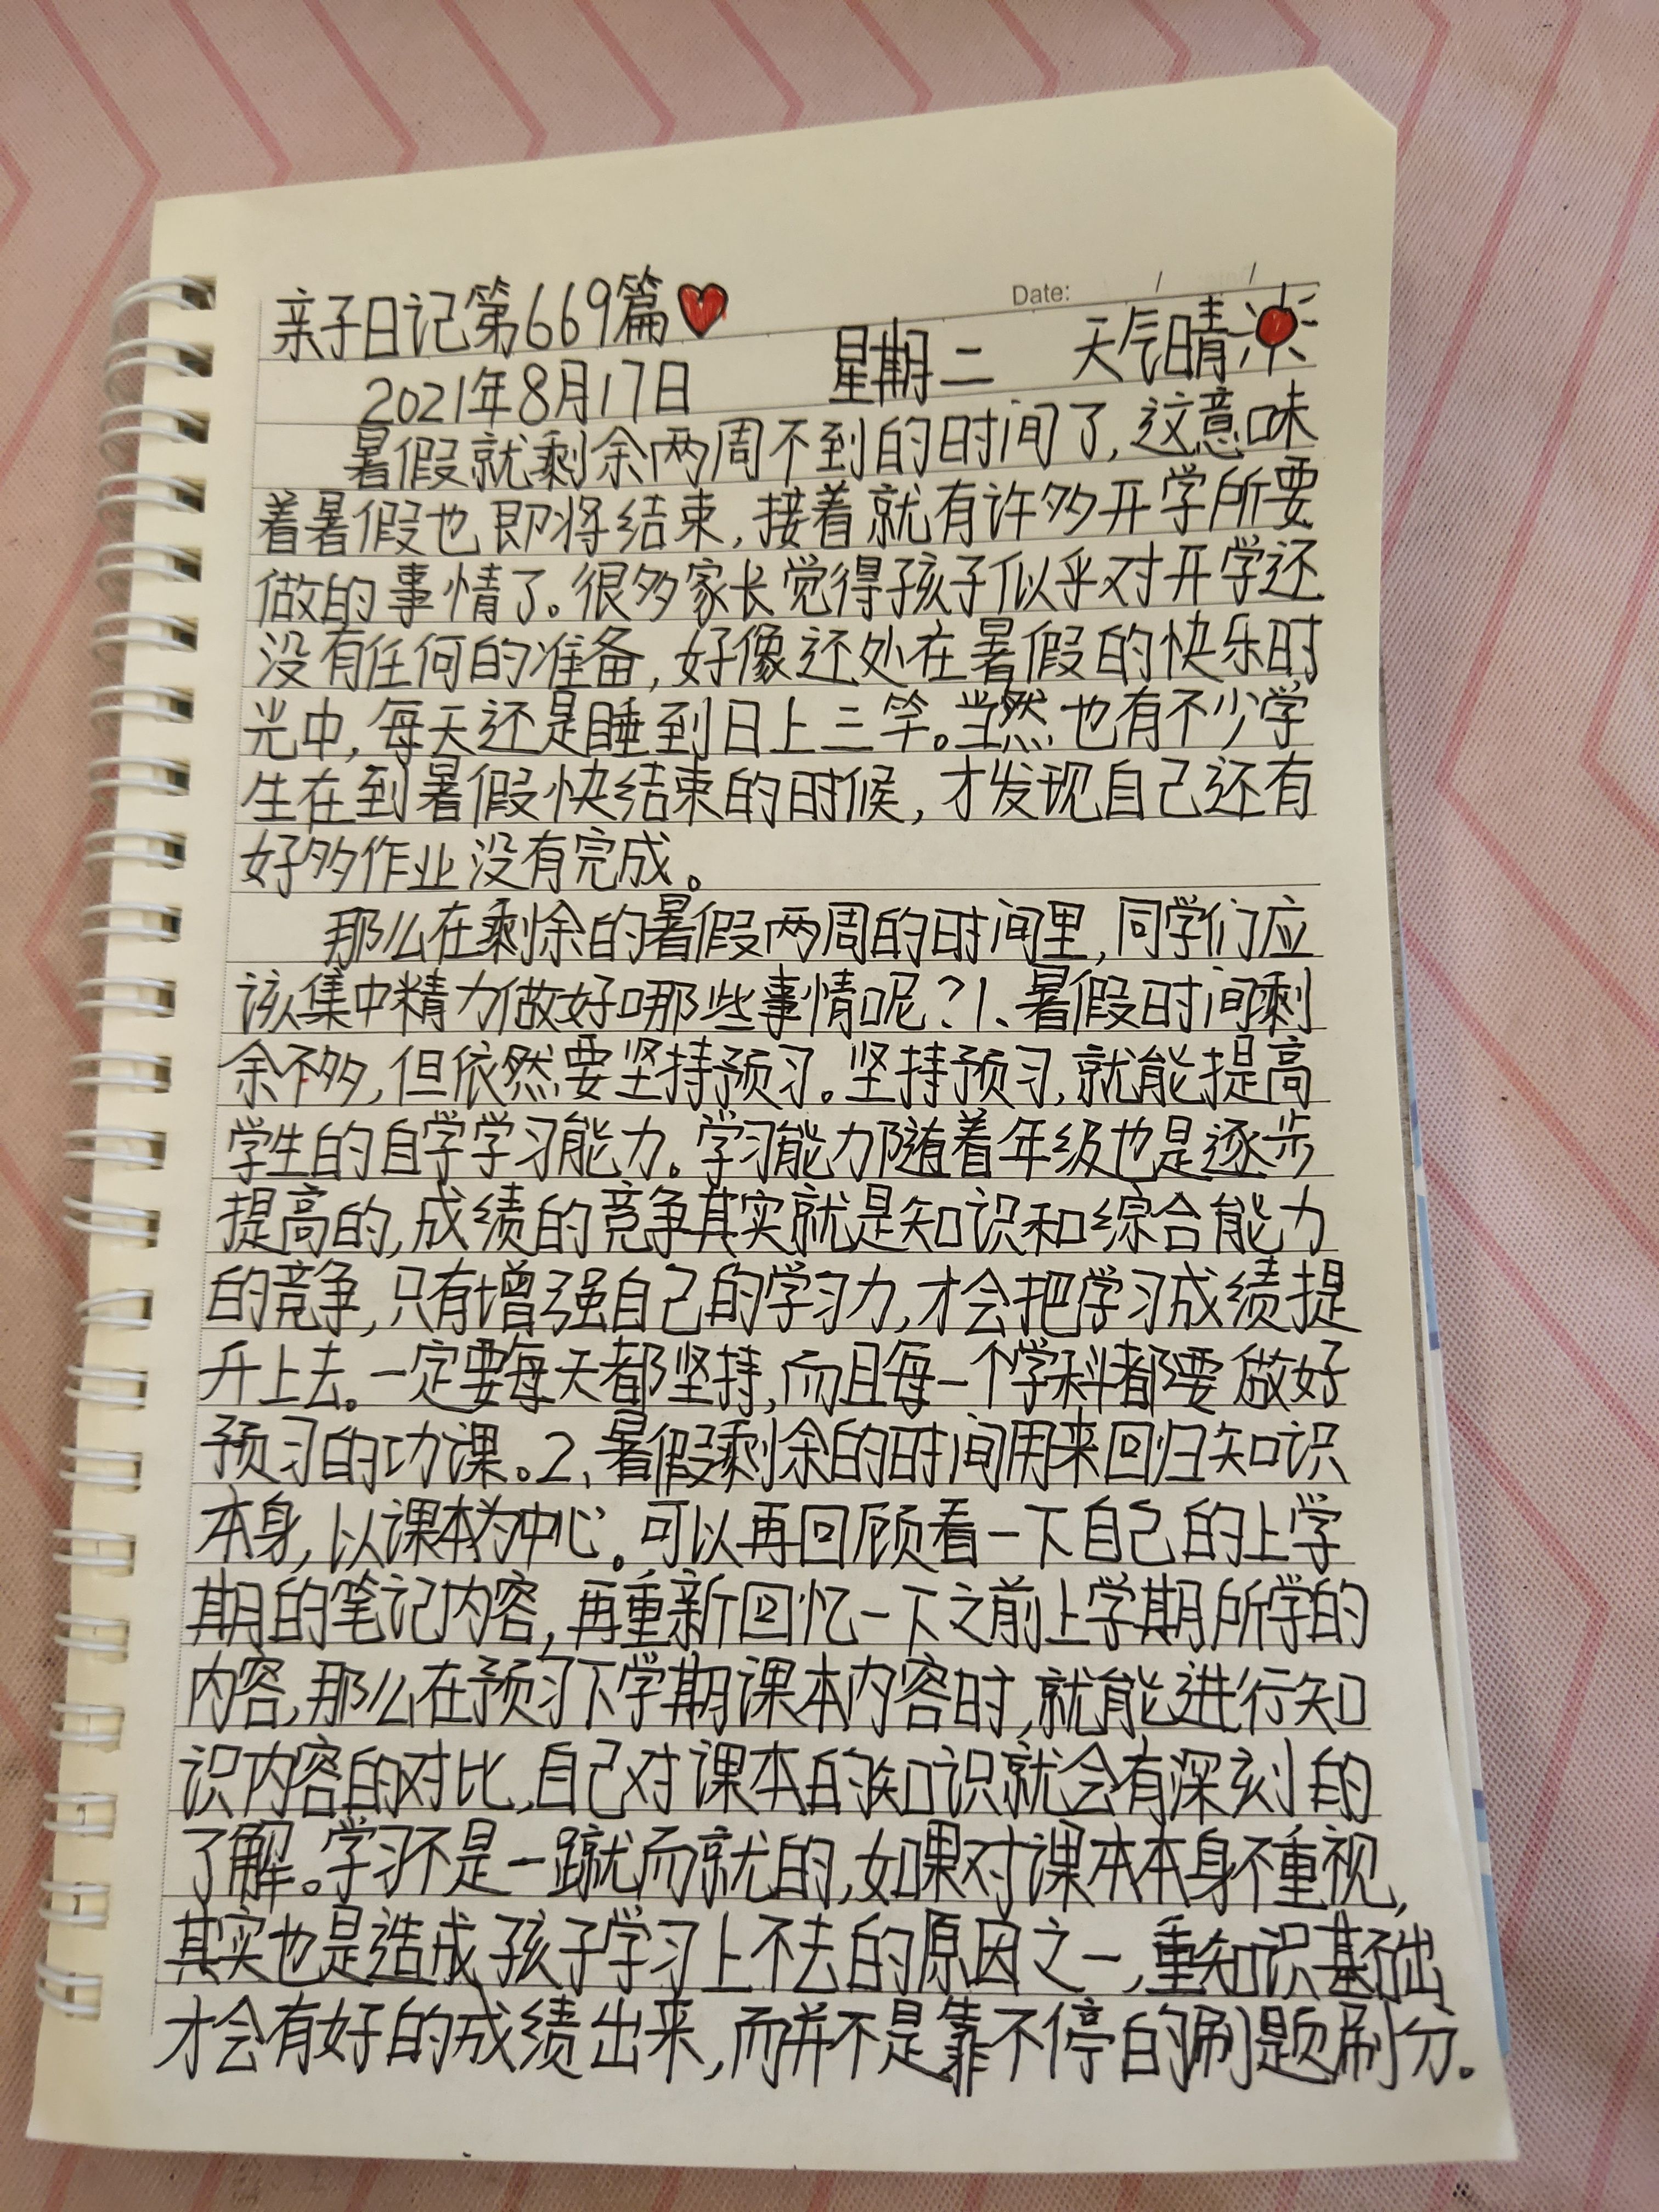 Date: / /
亲子日记第669篇
2021年8月17日 星期二 天气晴
暑假就剩余两周不到的时间了,这意味
着暑假也即将结束,接着就有许多开学所要
做的事情了。很多家长觉得孩子似乎对开学还
没有任何的准备,好像还处在暑假的快乐时
光中,每天还是睡到日上三竿。当然也有不少学
生在到暑假快结束的时候,才发现自己还有
好多作业没有完成。
那么在剩余的暑假两周的时间里,同学们应
该集中精力做好哪些事情呢?1、暑假时间剩
余不多,但依然要坚持预习。坚持预习,就能提高
学生的自学学习能力。学习能力随着年级也是逐步
提高的,成绩的竞争其实就是知识和综合能力
的竞争,只有增强自己的学习力,才会把学习成绩提
升上去。一定要每天都坚持,而且每一个学科都要做好
预习的功课。2、暑假剩余的时间用来回归知识
本身,以课本为中心。可以再回顾看一下自己的上学
期的笔记内容,再重新回忆一下之前上学期所学的
内容,那么在预习下学期课本内容时,就能进行知
识内容的对比,自己对课本的知识就会有深刻的
了解。学习不是一蹴而就的,如果对课本本身不重视,
其实也是造成孩子学习上不去的原因之一,重知识基础
才会有好的成绩出来,而并不是靠不停的刷题刷分。